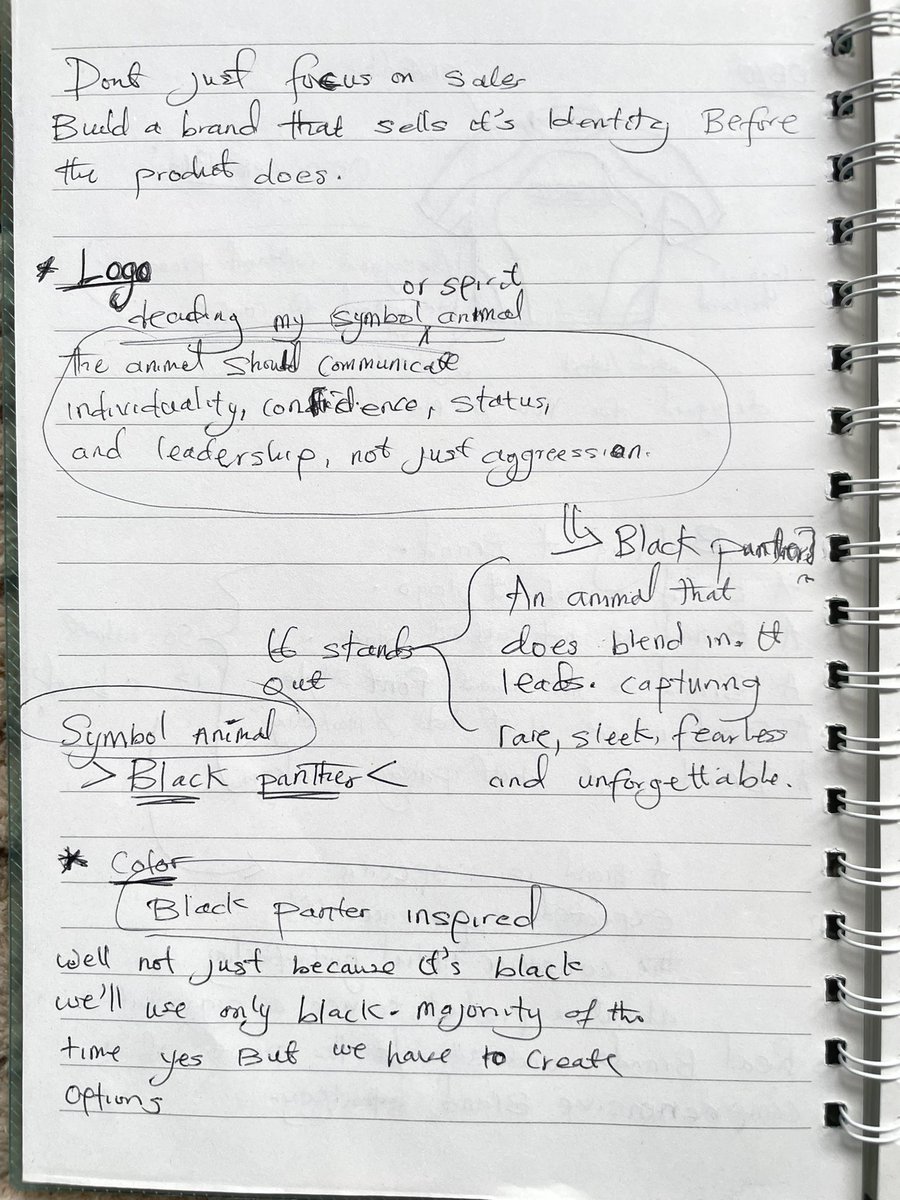 Dont just focus on sales
Build a brand that sells it's Identity Before
the product does.
* Logo
or spirit
deading my symbol ^ animal
The animel should communicate
individuality, confidence, status,
and leadership, not just aggreession.
Black panther?
An animal that
does blend in. It
leads. capturing
rare, sleek, fearless
and unforgettiable.
It stands
out
Symbol Animal
> Black panther <
* Color
Black panter inspired
well not just because it's black
we'll use only black - majority of the
time yes But we have to create
options